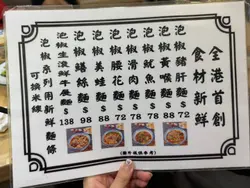 全港首創
食材新鮮
泡椒豬肝麵 $72
泡椒黃喉麵 $
泡椒魷魚麵 $78
泡椒滑肉麵 $72
泡椒腰花麵 $
泡椒美蛙麵 $88
泡椒鱔絲麵 $98
泡椒生滾鮮牛展麵 $138
泡椒系列用新鮮麵條
可換米線